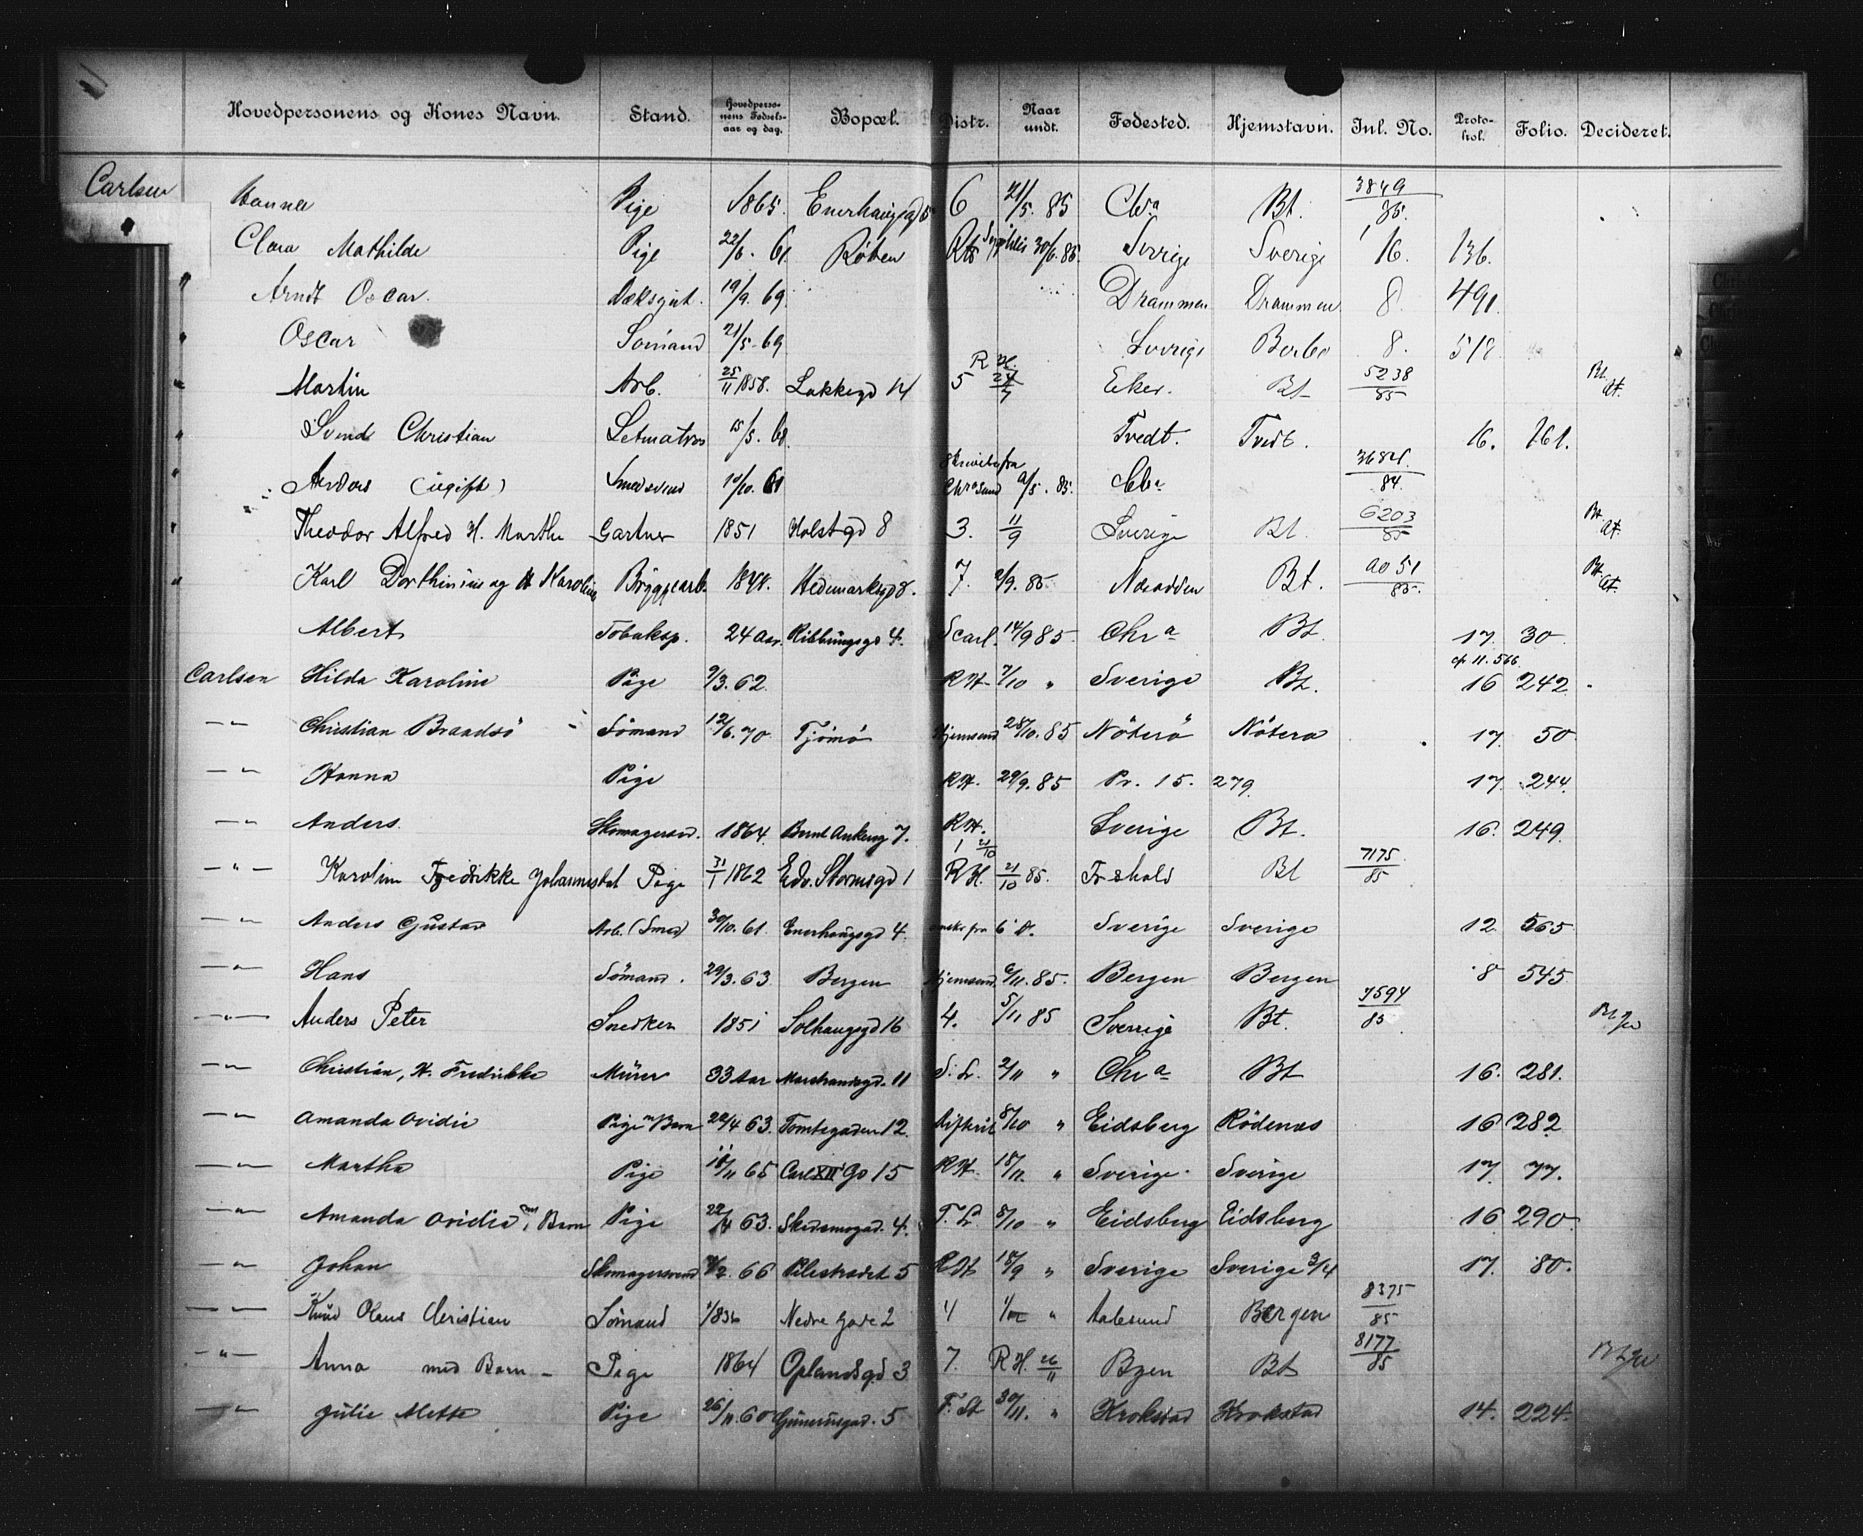 Hovedpersonens og Kones Navn. Stand. Hovedpersonens Fødselsaar og dag. Bopæl. Distr. Naar undt. Fødested. Hjemstavn. Inl. No. Protokol. Folio. Decideret.
Carlsen Hanna Pige 1865. Enerhaugsgd 6 21/5. 85 Chra Bt. 3849/85.
Clara Mathilde Pige 22/6. 61. Røken 30/6.85 Sverige Sverige 16. 136.
" Arndt Oscar. 19/9. 69. Drammen Drammen 8. 491.
" Oscar Sømand 21/5-69 Sverige 8. 518
" Martin Arb. 25/11 1858. Lakkegd 14 5 R H. Eker. Bt 5238/85 Bt
" Svend Christian 15/5. 60. Tvedt. Tvedt. 16. 161.
Anders (ugift) Smedsvend 10/10. 61 Skrivelse fra Chrasund /5. 85. 3684/84.
" Theodor Alfred H. Marthe Gartner 1851 Holstgd 8 3. 11/9 Sverige Bt. 6203/85 Bt
" Karl og H Karoline Bryggearb. Hedemarksgd 8. 7. /9. 85 Næsodden Bt. 85. Bt
Albert Tobaksp. 24 Aar. Ribbungsgd 4. Scarl. 14/9 85. Chra Bt. 17. 30.
cfr 11. 566
Carlsen Hilda Karoline Pige 9/3. 62. RH 7/10 " Sverige Bt. 16 242
—"— Christian Brandsö Sömand 12/6. 70 Tjömö Hjemsend 28/10. 85 Nöterö Nöterö 17. 50
—"— Hanna Pige RH. 29/9. 85 Pr. 15. 279. 17. 244.
—"— Anders. Skomagersvd. 1864. Bernt Ankersg 7. RH. Sverige Bt. 16. 249.
1 21/10
—"— Karoline Fredrikke Johannesdat Pige 31/1 1862 Edv. Stormsgd 1 R H. 21/10 85. Fr.shald Bt 7175/85
—"— Anders Gustav Arb. (Smed) 30/10. 61 Enerhaugsgd 4. fra 6 D. Sverige Sverige 12 565
—"— Hans Sömand. 29/3. 63. Bergen Hjemsend 6/11. 85. Bergen Bergen 8 545
—"— Anders Peter Snedker 1851 Solhaugsgd 16 4. 5/11 85 Sverrige Bt. 7594/85
—"— Christian, H. Fredrikke Mürer 33 Aar Marstrandsgd. 11 S. Sr. 2/11 " Chra Bt 16. 281.
—"— Amanda Ovidie Pige m Barn 22/4 63. Tomtegaden 12. 8/10 " Eidsberg Rödenæs 16 282
—"— Martha Pige 18/11 65 Carl XII Gd 15 RH. 18/11. " Sverige Sverige 17. 77.
—"— Amanda Ovidie, Barn Pige 22/4 63. 4. F. Sr 8/10 " Eidsberg Eidsberg 16 290
—"— Johan Skomagersvend /2. 66 Pilestrædet 5 RH 18/9 " Sverige Sverige 3/4 17. 80.
—"— Knud Olaus Christian Sømand 1836 Nedre Gade 2 4 " Aalesund Bergen 8375/85
—"— Anna med Barn - Pige 1864 Oplandsgd 3 7. R H. 26/11 Bgen Bt 8177/85
—"— Julie Mette Pige 26/11. 60 Grünersgad. 5 F. St 30/11. " Krokstad Krokstad 14. 224.